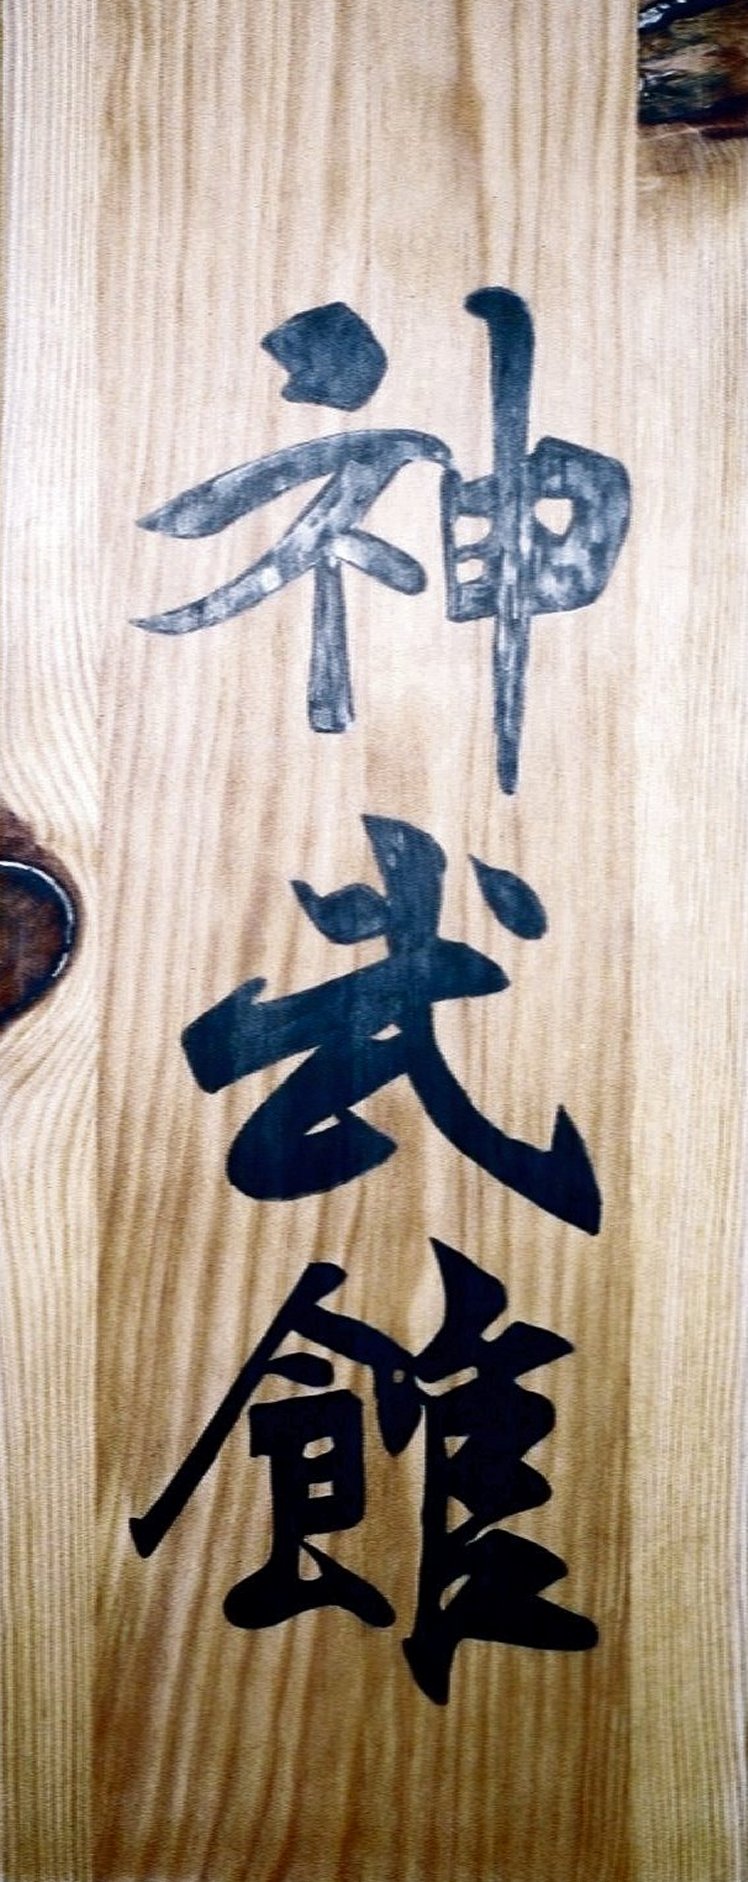 神武館